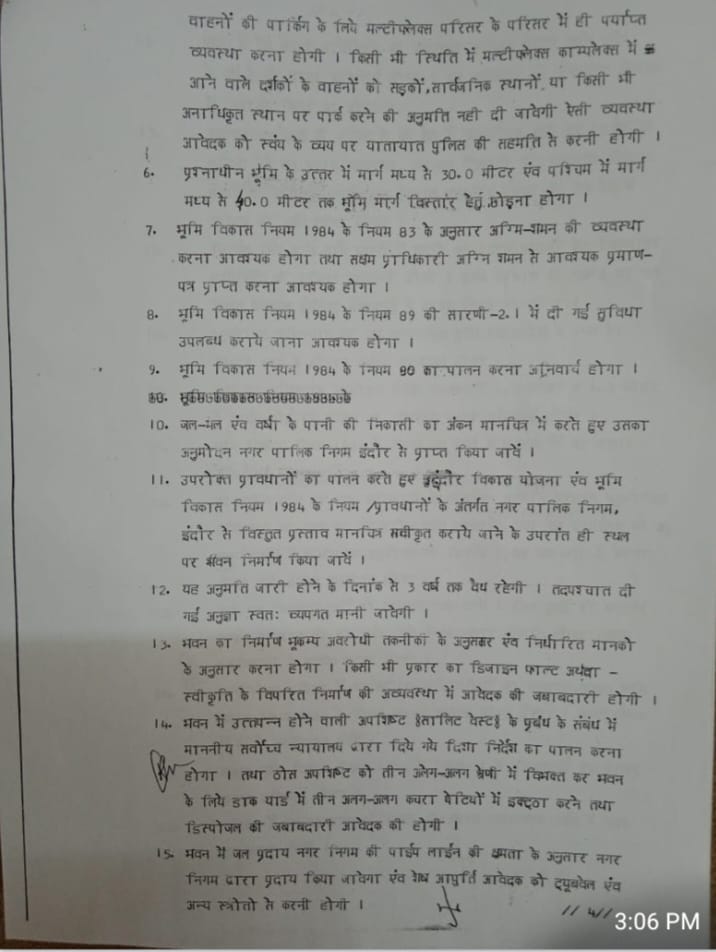 वाहनों की पार्किंग के लिये मल्टीप्लेक्स परिसर के परिसर में ही पर्याप्त
व्यवस्था करना होगी । किसी भी स्थिति में मल्टीप्लेक्स काम्पलेक्स में
आने वाले दर्शकों के वाहनों को सड़कों,सार्वजनिक स्थानों या किसी भी
अनाधिकृत स्थान पर पार्क करने की अनुमति नही दी जावेगी ऐसी व्यवस्था
आवेदक को स्वंय के व्यय पर यातायात पुलिस की सहमति से करनी होगी ।
6. प्रश्नाधीन भूमि के उत्तर में मार्ग मध्य से 30.0 मीटर एंव पश्चिम में मार्ग
मध्य से 40.0 मीटर तक भूमि मार्ग विस्तार हेतु छोड़ना होगा ।
7. भूमि विकास नियम 1984 के नियम 83 के अनुसार अग्नि-शमन की व्यवस्था
करना आवश्यक होगा तथा सक्षम प्राधिकारी अग्नि शमन से आवश्यक प्रमाण-
पत्र प्राप्त करना आवश्यक होगा ।
8. भूमि विकास नियम 1984 के नियम 89 की सारणी-2.1 में दी गई सुविधा
उपलब्ध कराये जाना आवश्यक होगा ।
9. भूमि विकास नियम 1984 के नियम 90 का पालन करना अनिवार्य होगा ।
10. भूमि विकास नियम 1984 के
10. जल-मल एंव वर्षा के पानी की निकासी का अंकन मानचित्र में करते हुए उसका
अनुमोदन नगर पालिक निगम इंदौर से प्राप्त किया जावें ।
11. उपरोक्त प्रावधानों का पालन करते हुए इंदौर विकास योजना एंव भूमि
विकास नियम 1984 के नियम /प्रावधानों के अंतर्गत नगर पालिक निगम,
इंदौर से विस्तृत प्रस्ताव मानचित्र स्वीकृत कराये जाने के उपरांत ही स्थल
पर भवन निर्माण किया जावें ।
12. यह अनुमति जारी होने के दिनांक से 3 वर्ष तक वैध रहेगी । तदपश्चात दी
गई अनुज्ञा स्वतः व्यपगत मानी जावेगी ।
13. भवन का निर्माण भूकम्प अवरोधी तकनीकी के अनुसार एंव निर्धारित मानको
के अनुसार करना होगा । किसी भी प्रकार का डिजाइन फाल्ट अथवा -
स्वीकृति के विपरित निर्माण की अव्यवस्था में आवेदक की जबाबदारी होगी ।
14. भवन में उत्तपन्न होने वाली अपशिष्ट §सालिट वेस्ट§ के प्रबंध के संबंध में
माननीय सर्वोच्च न्यायालय द्वारा दिये गये दिशा निर्देश का पालन करना
होगा । तथा ठोस अपशिष्ट को तीन अलग-अलग श्रेणी में विभक्त कर भवन
के लिये डाक यार्ड में तीन अलग-अलग कचरा पेटियों में इक्ट्ठा करने तथा
डिस्पोजल की जबाबदारी आवेदक की होगी ।
15. भवन में जल प्रदाय नगर निगम की पाईप लाईन की क्षमता के अनुसार नगर
निगम द्वारा प्रदाय किया जावेगा एंव शेष आपुर्ति आवेदक को ट्यूबवेल एंव
अन्य स्त्रोतो से करनी होगी ।
// 4//
3:06 PM